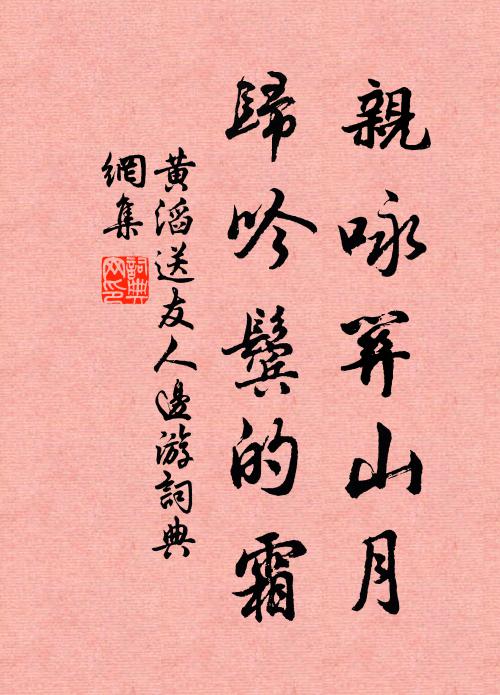 親咏關山月
歸吟鬢的霜
黃滔送友人邊游詞典
網集
詞典網印